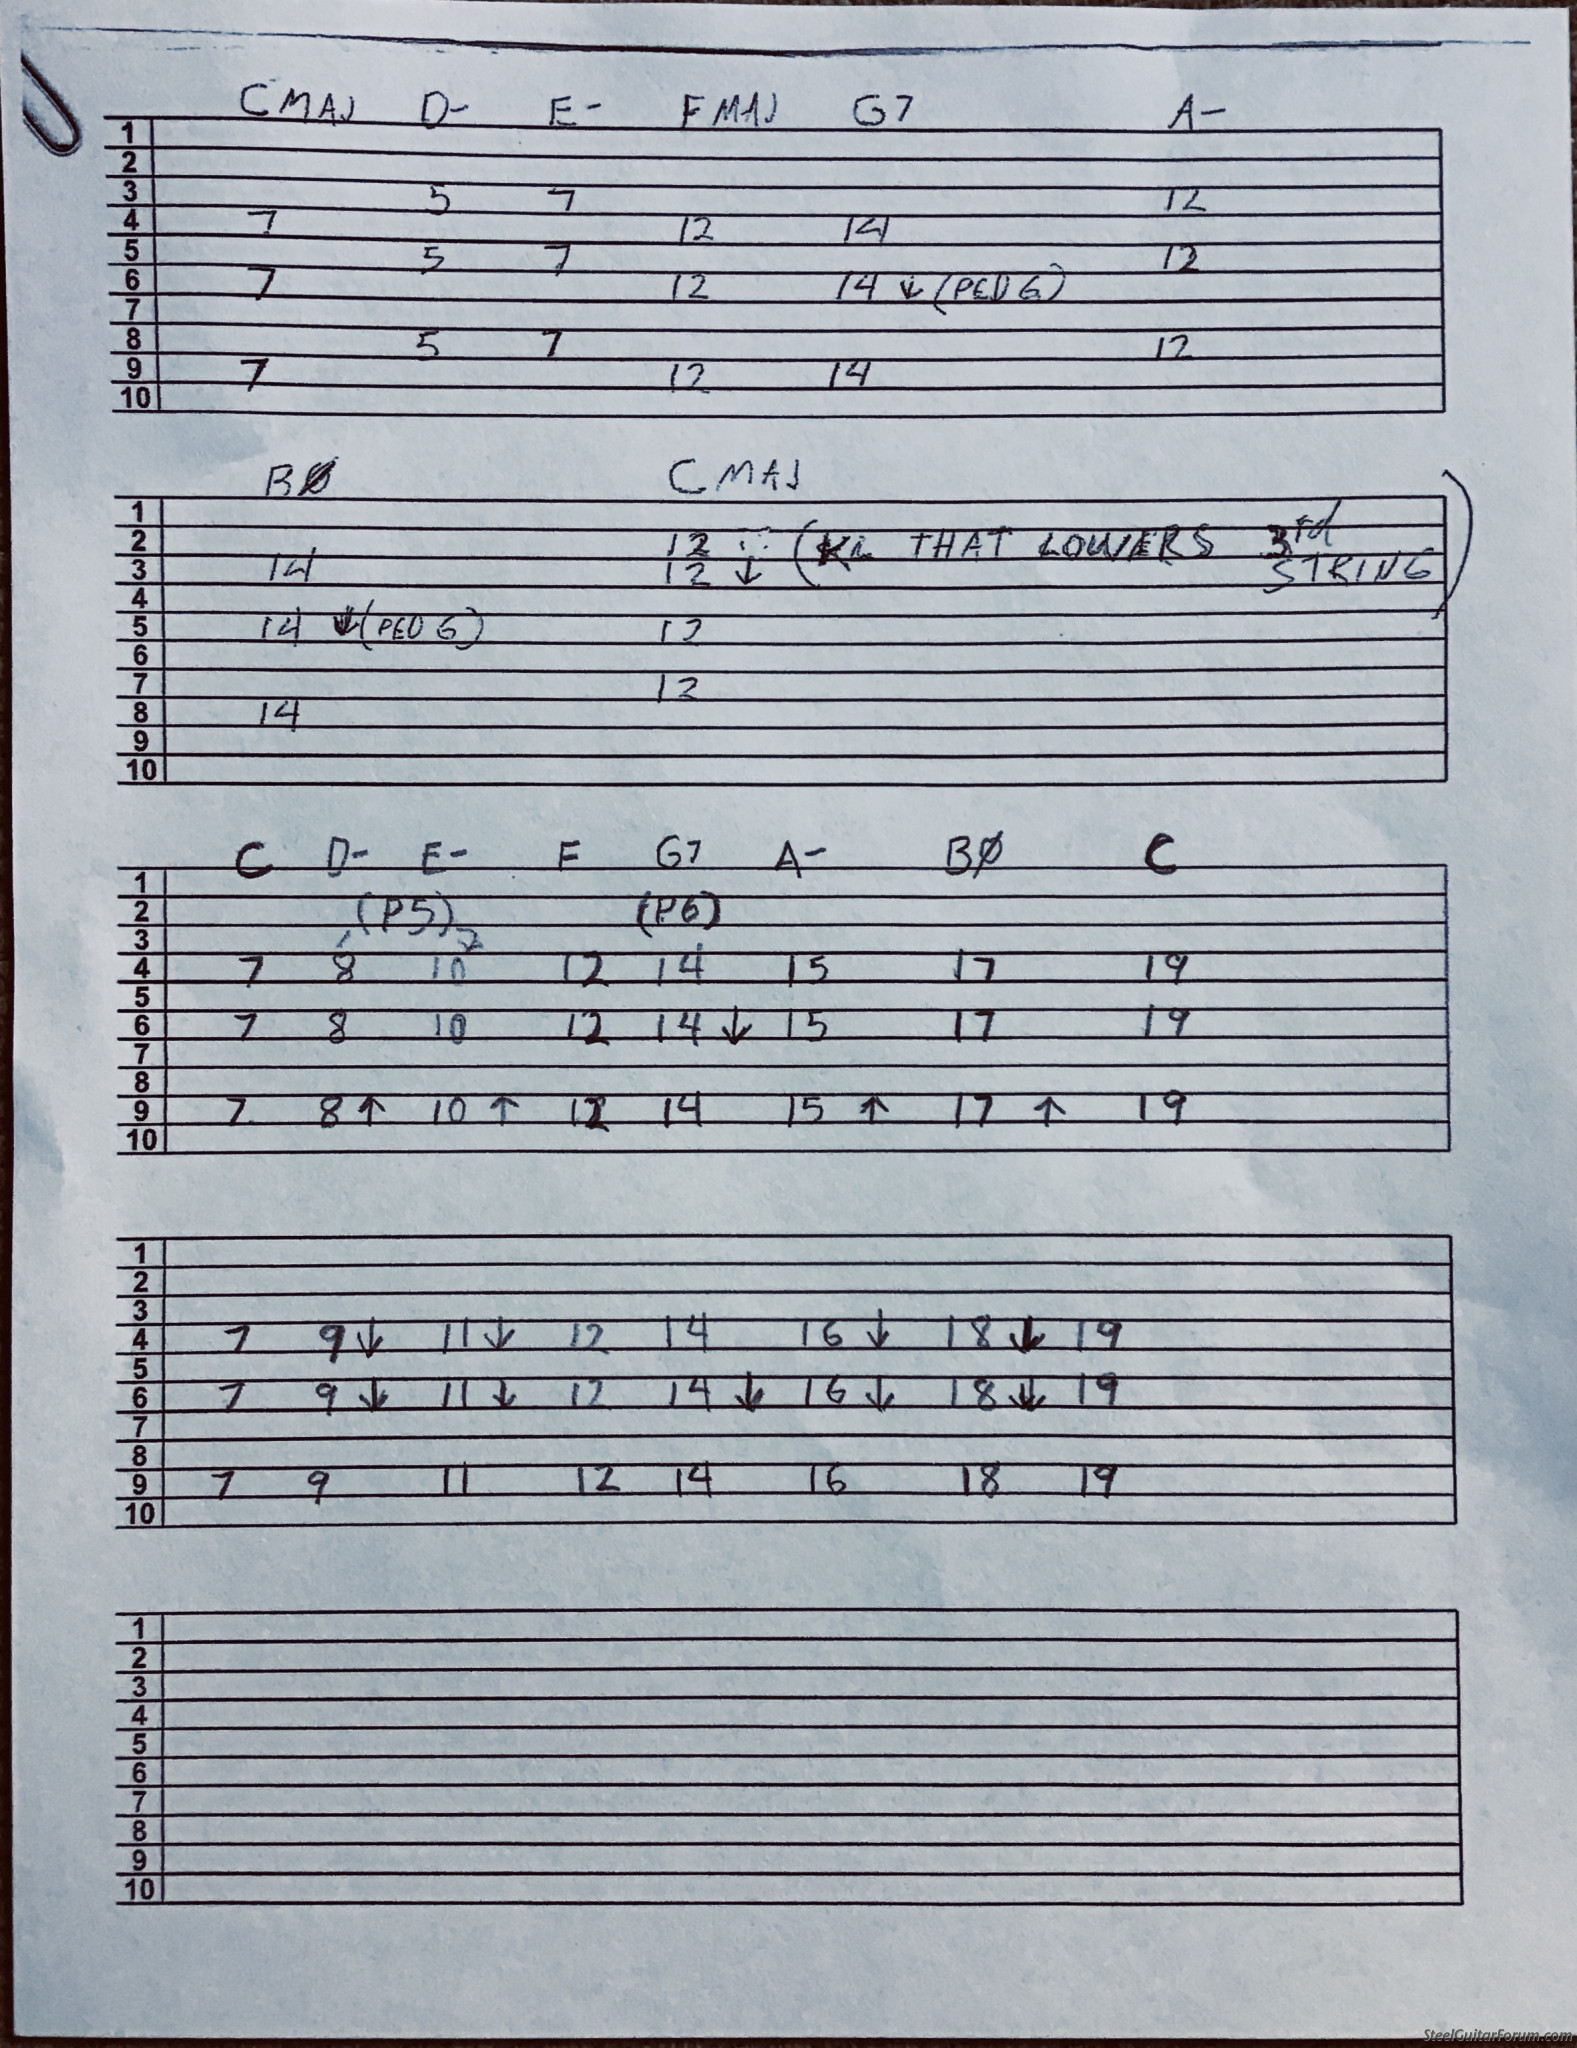 C MAJ D- E- F MAJ G7 A-
1
2
3 5 7 12
4 7 12 14
5 5 7 12
6 7 12 14 ↓ (PED 6)
7
8 5 7 12
9 7 12 14
10
BØ C MAJ
1
2 12 (KL THAT LOWERS 3rd
3 14 12 ↓ STRING)
4
5 14 ↓ (PED 6) 12
6
7 12
8 14
9
10
C D- E- F G7 A- BØ C
1
2 (P5) (P6)
3
4 7 8 10 12 14 15 17 19
5
6 7 8 10 12 14 ↓ 15 17 19
7
8
9 7 8 ↑ 10 ↑ 12 14 15 ↑ 17 ↑ 19
10
1
2
3
4 7 9 ↓ 11 ↓ 12 14 16 ↓ 18 ↓ 19
5
6 7 9 ↓ 11 ↓ 12 14 ↓ 16 ↓ 18 ↓ 19
7
8
9 7 9 11 12 14 16 18 19
10
1
2
3
4
5
6
7
8
9
10
SteelGuitarForum.com